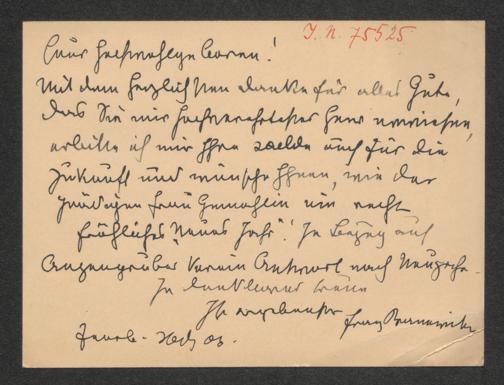 J. N. 75525
Euer Hochwohlgeboren!
Mit dem herzlichsten Danke für alles Gute,
das Sie mir hochverehrtester Herr erwiesen,
erbitte ich mir Ihre Huld auch für die
Zukunft und wünsche Ihnen, wie der
gnädigen Frau Gemahlin ein recht
fröhliches "Neues Jahr"! In Bezug auf
Anzengruber Verein Antwort nach Neujahr.
In dankbarer Treue
Ihr ergebenster Franz